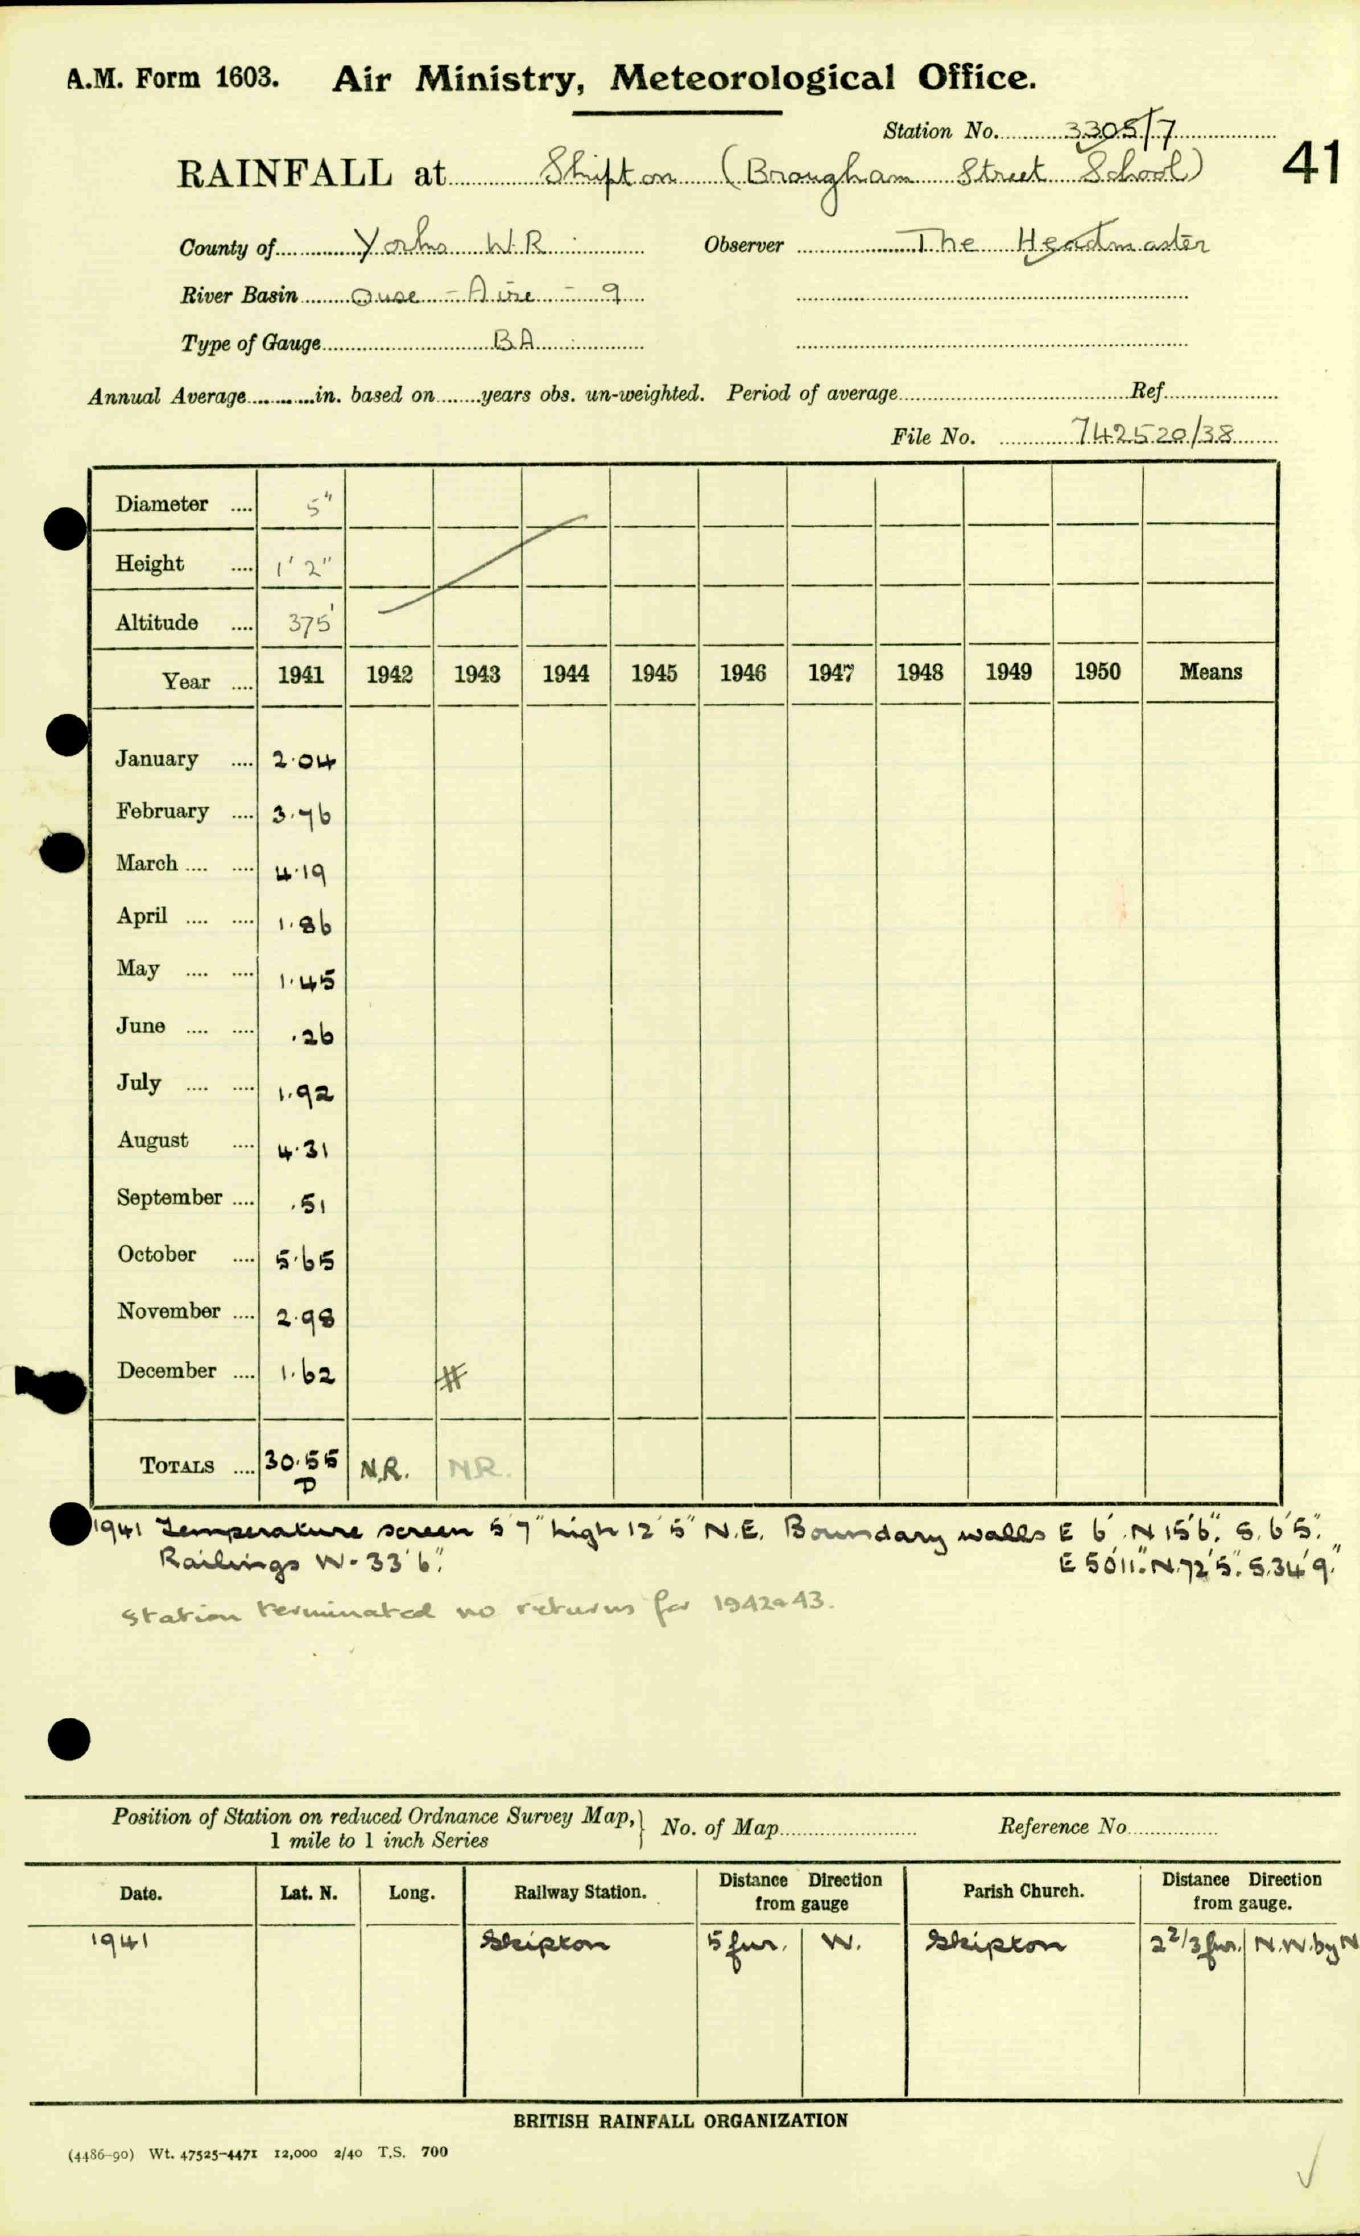 A.M. Form 1603. Air Ministry, Meteorological Office.
Station No. 3305/7
41
RAINFALL at Skipton (Brougham Street School)
County of Yorks W.R. Observer The Headmaster
River Basin Ouse - Aire - 9
Type of Gauge B A
Annual Average in. based on years obs. un-weighted. Period of average Ref.
File No. 742520/38
Diameter 5"
Height 1' 2"
Altitude 375'
Year 1941 1942 1943 1944 1945 1946 1947 1948 1949 1950 Means
January 2.04
February 3.76
March 4.19
April 1.86
May 1.45
June .26
July 1.92
August 4.31
September .51
October 5.65
November 2.98
December 1.62 #
TOTALS 30.55 N.R. N.R.
D
1941 Temperature screen 5'7" high 12'5" N.E. Boundary walls E 6' N 15'6". S. 6'5".
Railings W - 33'6". E 50'11". N. 72'5". S. 34'9."
Station terminated no returns for 1942 & 43.
Position of Station on reduced Ordnance Survey Map, 1 mile to 1 inch Series } No. of Map Reference No
Date. Lat. N. Long. Railway Station. Distance Direction from gauge Parish Church. Distance Direction from gauge.
1941 Skipton 5 fur. W. Skipton 2 2/3 fur. N.W. by N
BRITISH RAINFALL ORGANIZATION
(4486-90) Wt. 47525-4471 12,000 2/40 T.S. 700